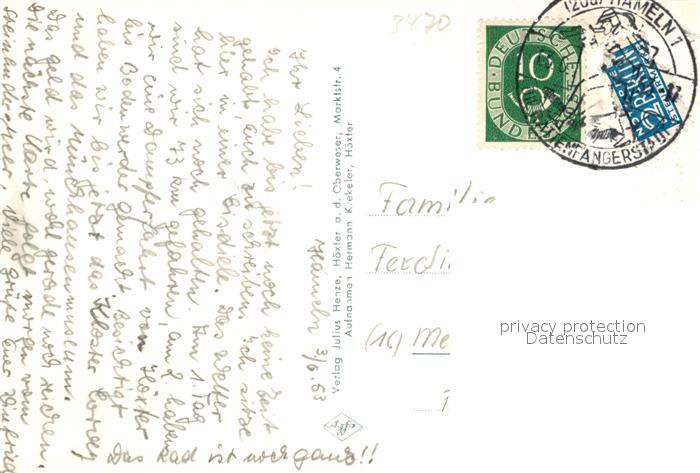 3470
(20a) HAMELN 1
RATTENFÄNGERSTADT
DEUTSCHE
BUNDESPOST
10
2
NOTOPFER
BERLIN
STEUERMARKE
Hameln 3/6. 53
Ihr Lieben!
Ich habe bis jetzt noch keine Zeit
gehabt, euch zu schreiben. Ich sitze
hier in einer Eisdiele. Das Wetter
hat sich noch gehalten. Am 1. Tag
sind wir 73 km gefahren, am 2. haben
wir eine Dampferfahrt von Höxter
bis Bodenwerder gemacht. Besichtigt
haben wir bis jetzt das Kloster Corvey
und das Münchhausenmuseum.
Das Geld wird wohl gerade noch reichen.
Die nächste Karte folgt morgen vom
Steinhuder Meer. Viele Grüße Euer
Das Rad ist noch ganz!!
Verlag Julius Henze, Höxter a. d. Oberweser, Marktstr. 4
Aufnahmen Hermann Kiekeler, Höxter
Familie
Ferdi
Me
privacy protection
Datenschutz